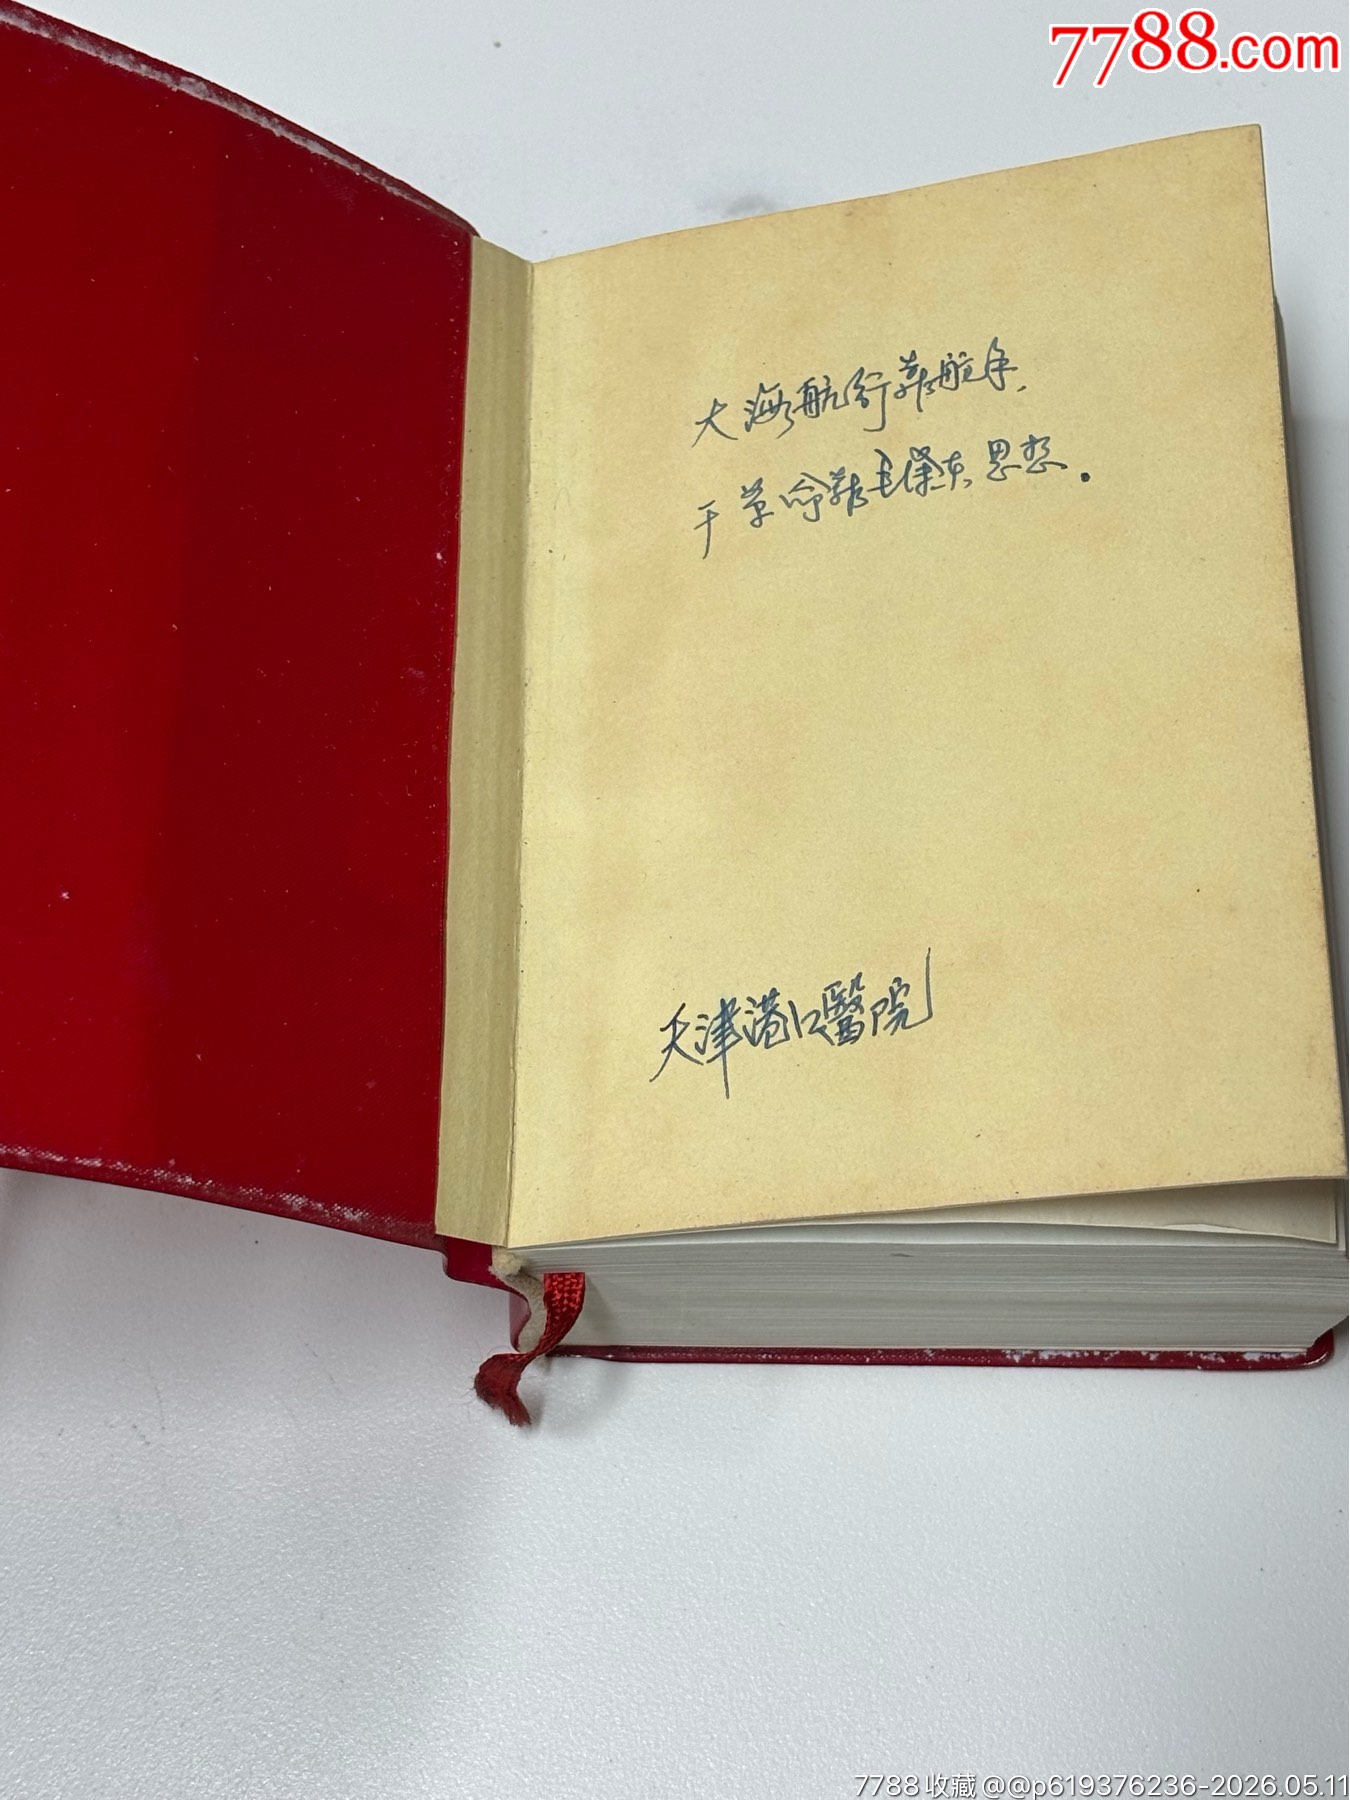 7788.com
大海航行靠航手、
干革命靠毛泽东思想.
天津港口醫院
7788收藏@@p619376236-2026.05.11